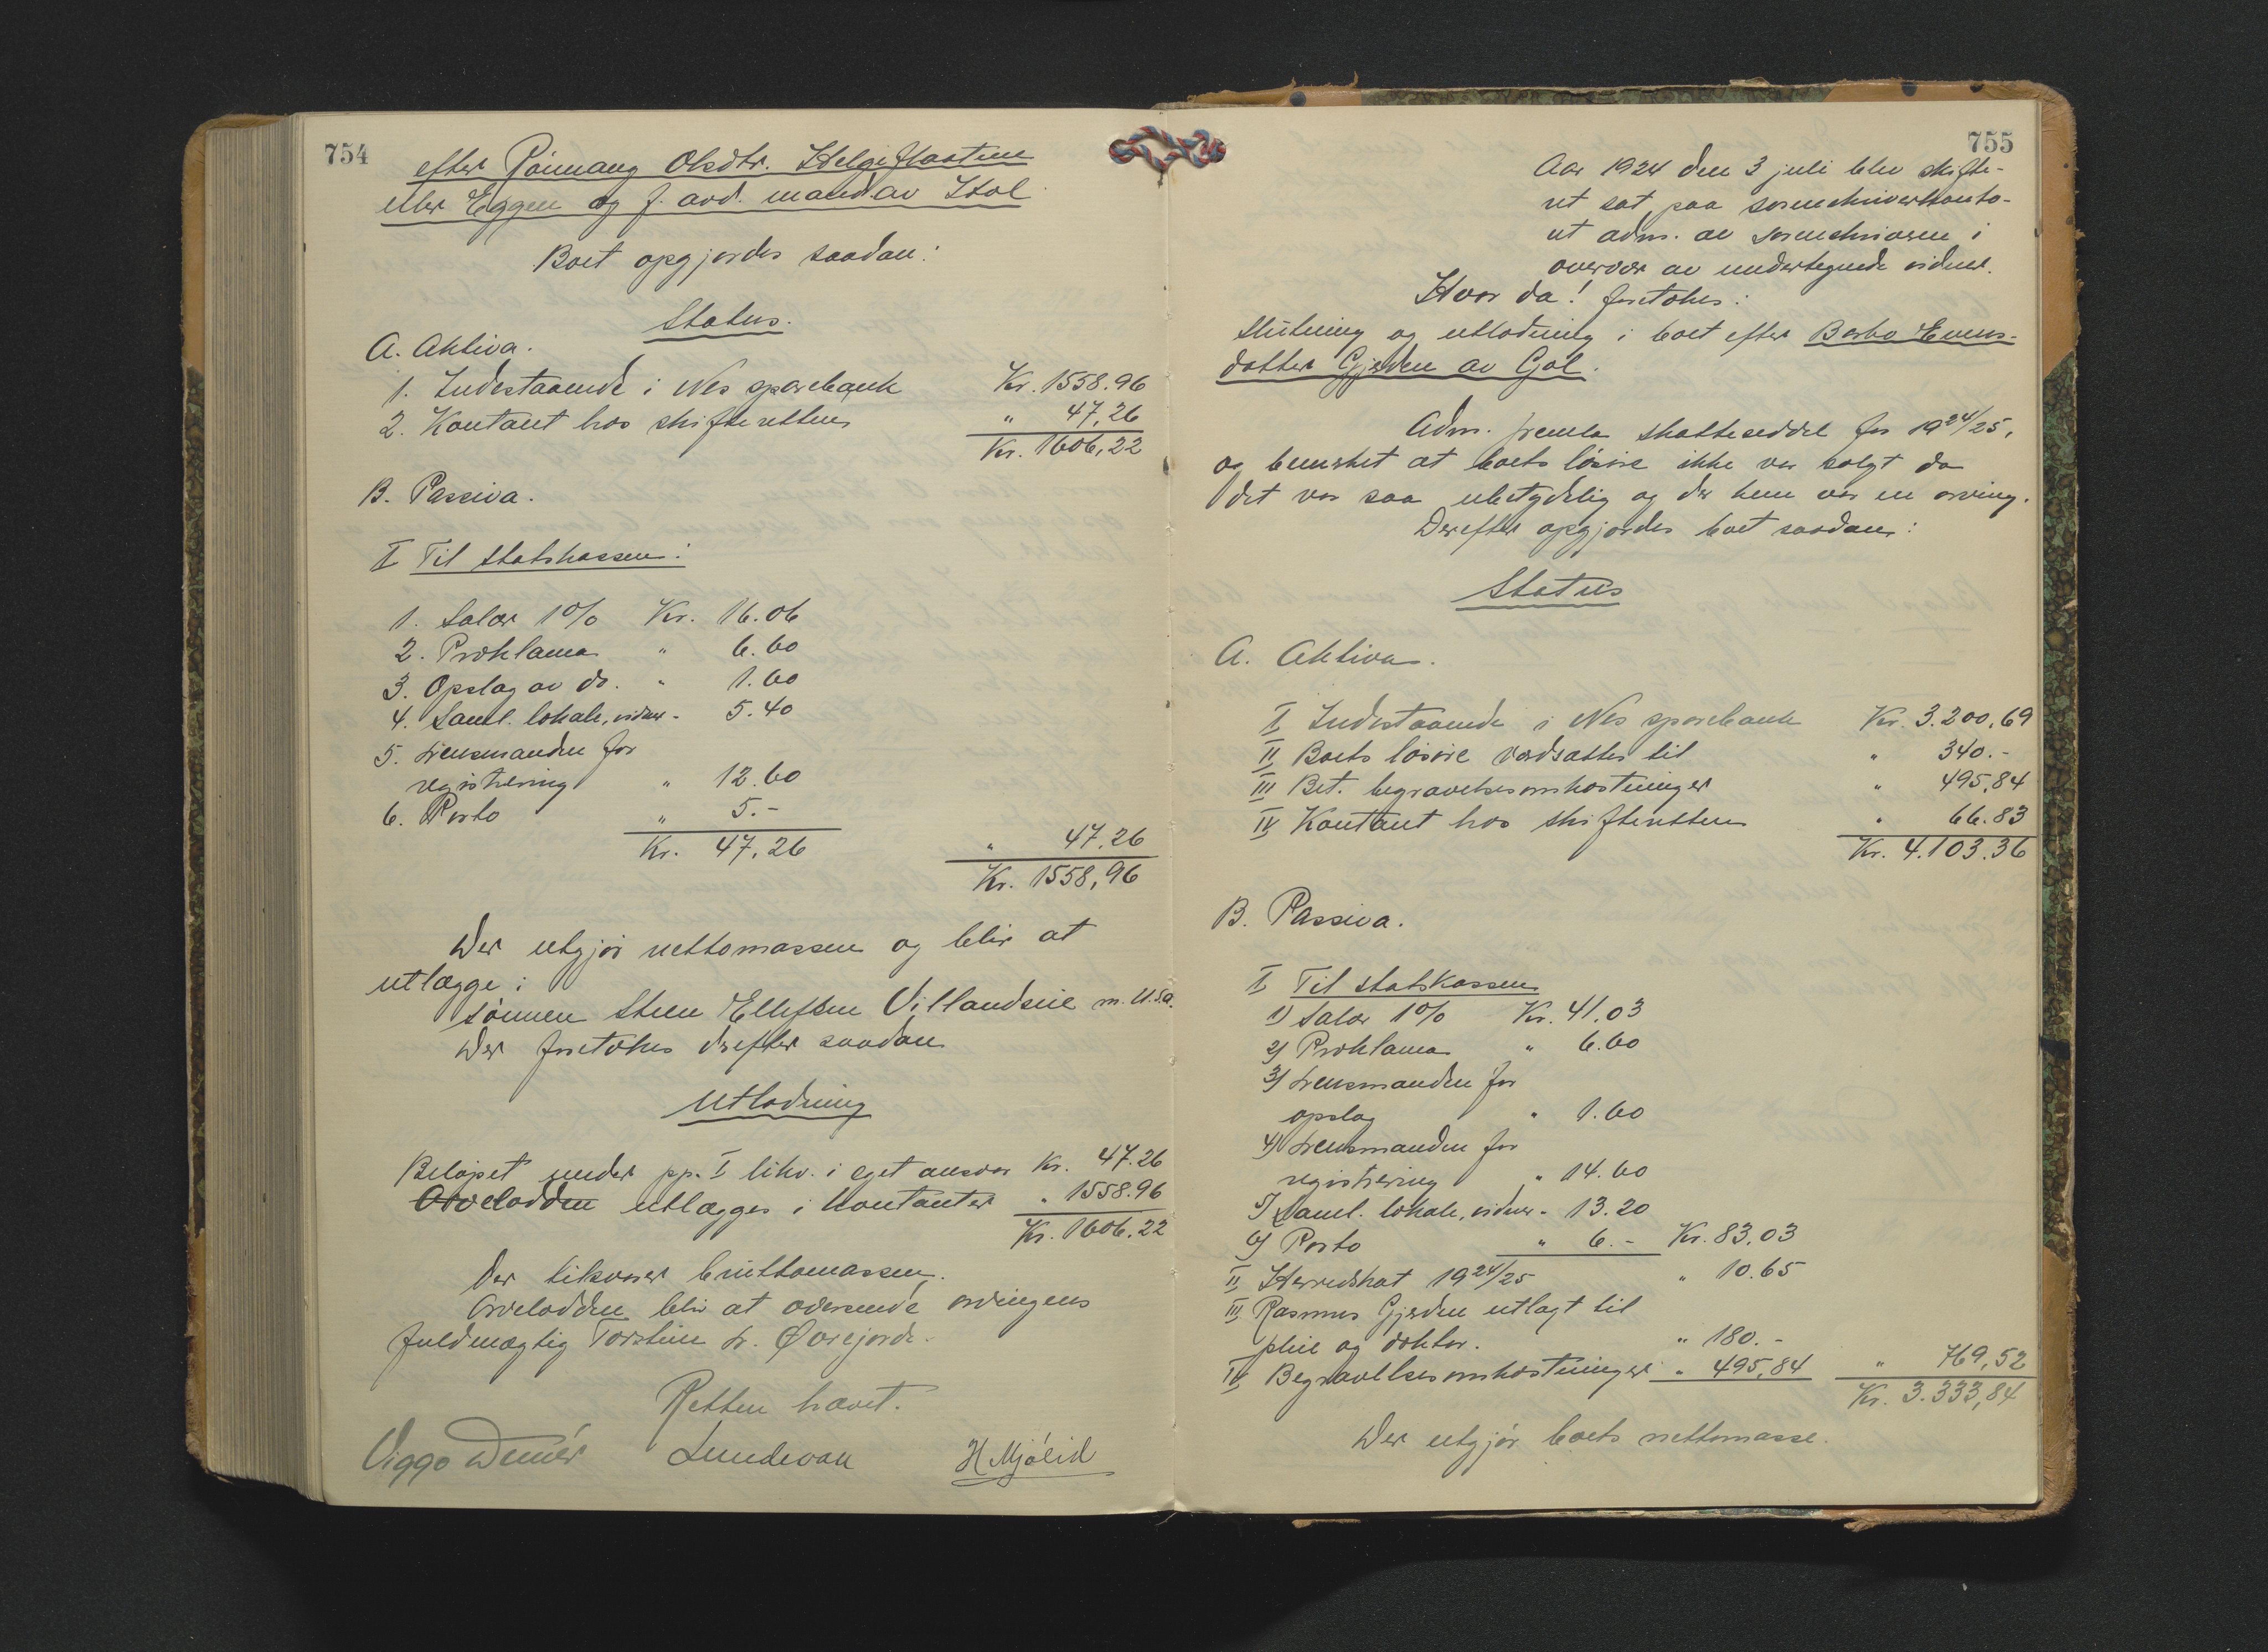 754
efter Rönnaug Olsdtr. Helgeflaatene
eller Eggen og f. avd. mand av Hol
Boet opgjordes saadan:
Status.
A. Aktiva.
1. Indestaaende i Nes sparebank Kr. 1558.96
2. Kontant hos skifteretten " 47,26
Kr. 1606,22
B. Passiva.
I Til statskassen:
1. Salær 1% Kr. 16.06
2. Proklama " 6.60
3. Opslag av do. " 1.60
4. Saml. lokale, vidner " 5.40
5. Lensmanden for
registrering " 12.60
6. Porto " 5.-
Kr. 47,26 " 47,26
Kr. 1558,96
Der utgjör nettomassen og blir at
utlægge:
Sönnen Steen Ellefsen Villandseie m. U.S.A.
Der foretokes derefter saadan
Utlodning
Belöpet under pp. I likv. i eget ansvar Kr. 47.26
Arvelodden utlægges i kontanter " 1558.96
Kr. 1606.22
Der tilsvarer bruttomassen.
Arvelodden blir at oversende arvingens
fuldmægtig Torstein L. Øvrejorde.
Retten hævet.
Viggo Lundevan H. Mjöeid
755
Aar 1924 den 3 juli blev skifte-
ret sat paa sorenskriverkonto-
ret adm. av sorenskriveren i
overvær av undertegnede vidner.
Hvor da! foretokes:
Slutning og utlodning i boet efter Barbo Evens-
datter Gjerden av Gol.
Adm. fremla skatteseddel for 1924/25,
og bemerket at boets lösöre ikke var solgt da
det var saa ubetydelig og der kun var en arving.
Derefter opgjordes boet saadan:
Status
A. Aktiva.
I Indestaaende i Nes sparebank Kr. 3.200,69
II Boets lösöre værdsattes til " 340.-
III Bet. begravelsesomkostninger " 495,84
IV Kontant hos skifteretten " 66.83
Kr. 4.103.36
B. Passiva.
I Til statskassen
1) Salær 1% Kr. 41.03
2) Proklama " 6.60
3) Lensmanden for
opslag " 1.60
4) Lensmanden for
registrering " 14.60
5) Saml. lokale, vidner " 13.20
6) Porto " 6.- Kr. 83.03
II Herredskat 1924/25 " 10.65
III Rasmus Gjerden utlagt til
pleie og doktor. " 180.-
IV Begravelsesomkostninger " 495,84 " 769,52
Kr. 3.333,84
Der utgjör boets nettomasse.